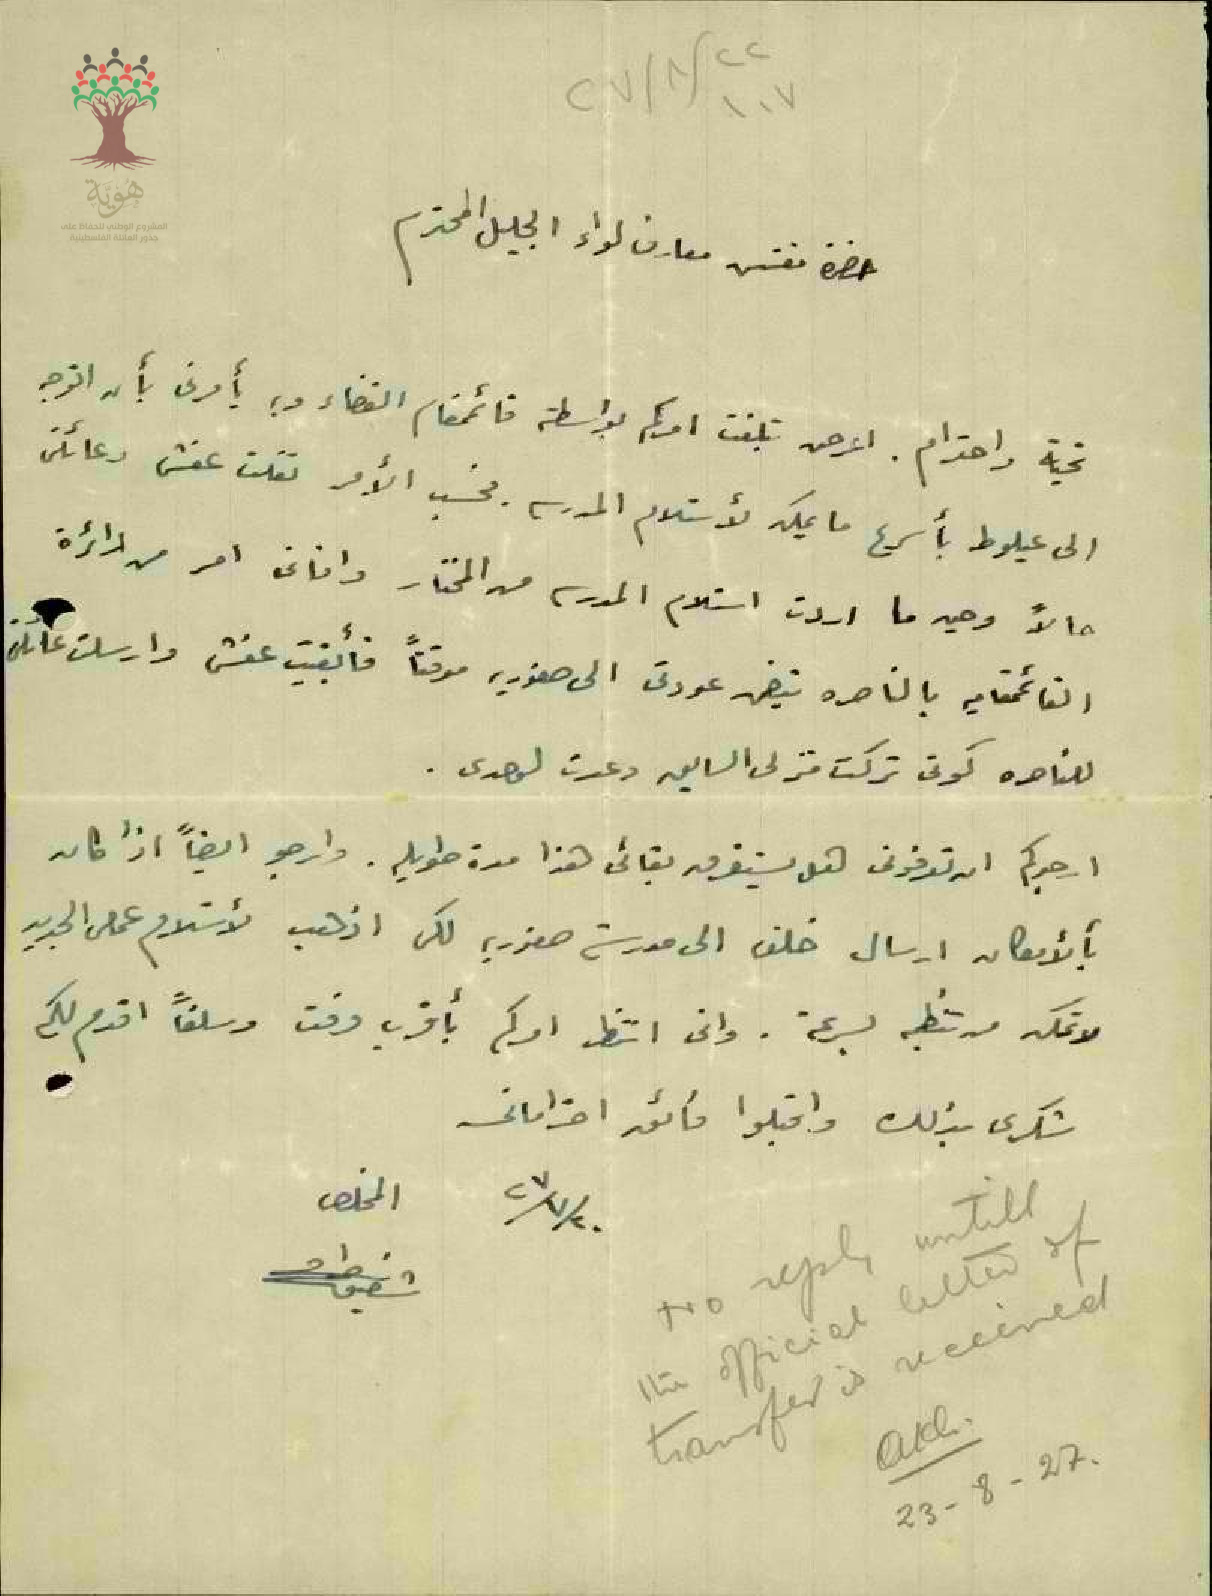 ٢٧/٨/٢٢
١٠٧
هُوِيَّة
المشروع الوطني للحفاظ على
جذور العائلة الفلسطينية
حضرة مفتش معارف لواء الجليل المحترم
تحية واحترام. اعرض تبلغت امركم بواسطة قائمقام القضاء وبه يأمرني بأن اتوجه
الى عيلوط بأسرع ما يمكن لأستلام المدرسه. فحسب الأمر نقلت عفشي وعائلتي
حالاً وحينما اردت استلام المدرسه من المختار وافاني امر من دائرة
القائمقاميه بالناصره عودتي الى صفوريه موقتاً فأبقيت عفشي وارسلت عائلتي
للناصره كوني تركت منزلي السابق وعدت لوحدي.
ارجوكم ان تعرفوني هل يستغرق بقائي هذا مدة طويله. وارجو ايضاً اذا كان
بالأمكان ارسال خلف الى مدرسة صفوريه لكي اذهب لأستلام عملي الجديد
لاتمكن من تنظيمه بسرعة. واني انتظر امركم بأقرب وقت وسلفاً اقدم لكم
شكري بذلك واقبلوا فائق احتراماتي
٢٧/٧/٢٠ المخلص
شفيق
No reply untill
the official letter of
transfer is received
23-8-27.